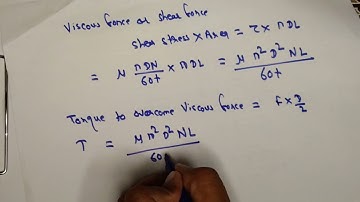 Viscous force or shear force
shear stress × Area = τ × π DL
= μ πDN/60t × π DL = μ π² D² NL/60t
Torque to overcome Viscous force = F × D/2
T = μ π² D² NL/60